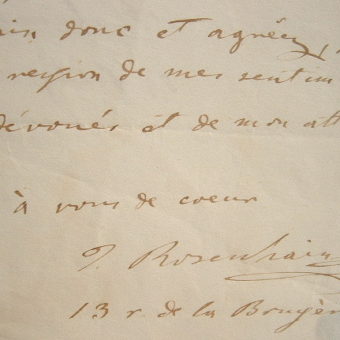 donc et agréez
de mes sentim
dévoués et de mon att
à vous de coeur
J. Rosenhain
13 r de la Bruyèr